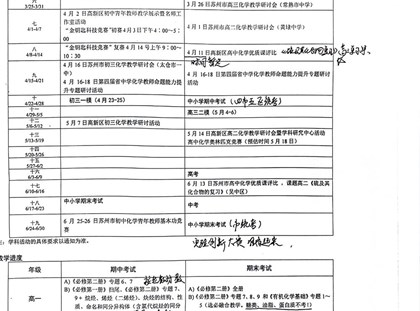 六
3/25-3/31
3月26日苏州市高三化学教学研讨会（常熟市中学）
七
4/1-4/7
4月2日高新区初中青年教师教学展示暨名师工作室活动
"金钥匙科技竞赛"初赛4月3日下午4：00-5：00
4月1日苏州市高二化学教学研讨会（黄埭中学）
八
4/8-4/14
"金钥匙科技竞赛"复赛4月14号上午9：00-10：30
4月11日高新区高中化学优质课评比
九
4/15-4/21
4月18日苏州市初三化学教学研讨会（太仓市一中）
4月16-18日第四届省中学化学教师命题能力提升专题研讨活动
4月16-18日第四届省中学化学教师命题能力提升专题研讨活动
十
4/22-4/28
初三一模（4月23-25）
中小学期中考试
十一
4/29-5/5
高三二模（5月4-6）
十二
5/6-5/12
5月7日高新区初三化学教学研讨活动
十三
5/13-5/19
5月14日高新区高二化学教学研讨会暨学科研究中心活动
高中化学奥林匹克竞赛（预估时间5月18日）
十四
5/20-5/26
十五
5/27-6/2
十六
6/3-6/9
高考
十七
6/10-6/16
6月13日苏州市高中化学优质课评比，课题高二《硫及其化合物的复习》（吴中区）
十八
6/17-6/23
中小学期末考试
中考
十九
6/24-6/30
6月25-26日苏州市初中化学青年教师基本功竞赛
中小学期末考试
注：学科活动的具体要求以通知为准。
教学进度
年级
期中考试
期末考试
高一
A）《必修第二册》专题6、7
B）《必修第一册》扫尾，《必修第二册》专题7、9+烷烃、烯烃（二烯烃）、炔烃的结构、性质、命名和同分异构体（含苯代烷烃的同分
A）《必修第二册》全册
B）《必修第二册》专题7、8、9和《有机化学基础》专题1～5（选必融合教学，糖类、油脂、蛋白质不考！）